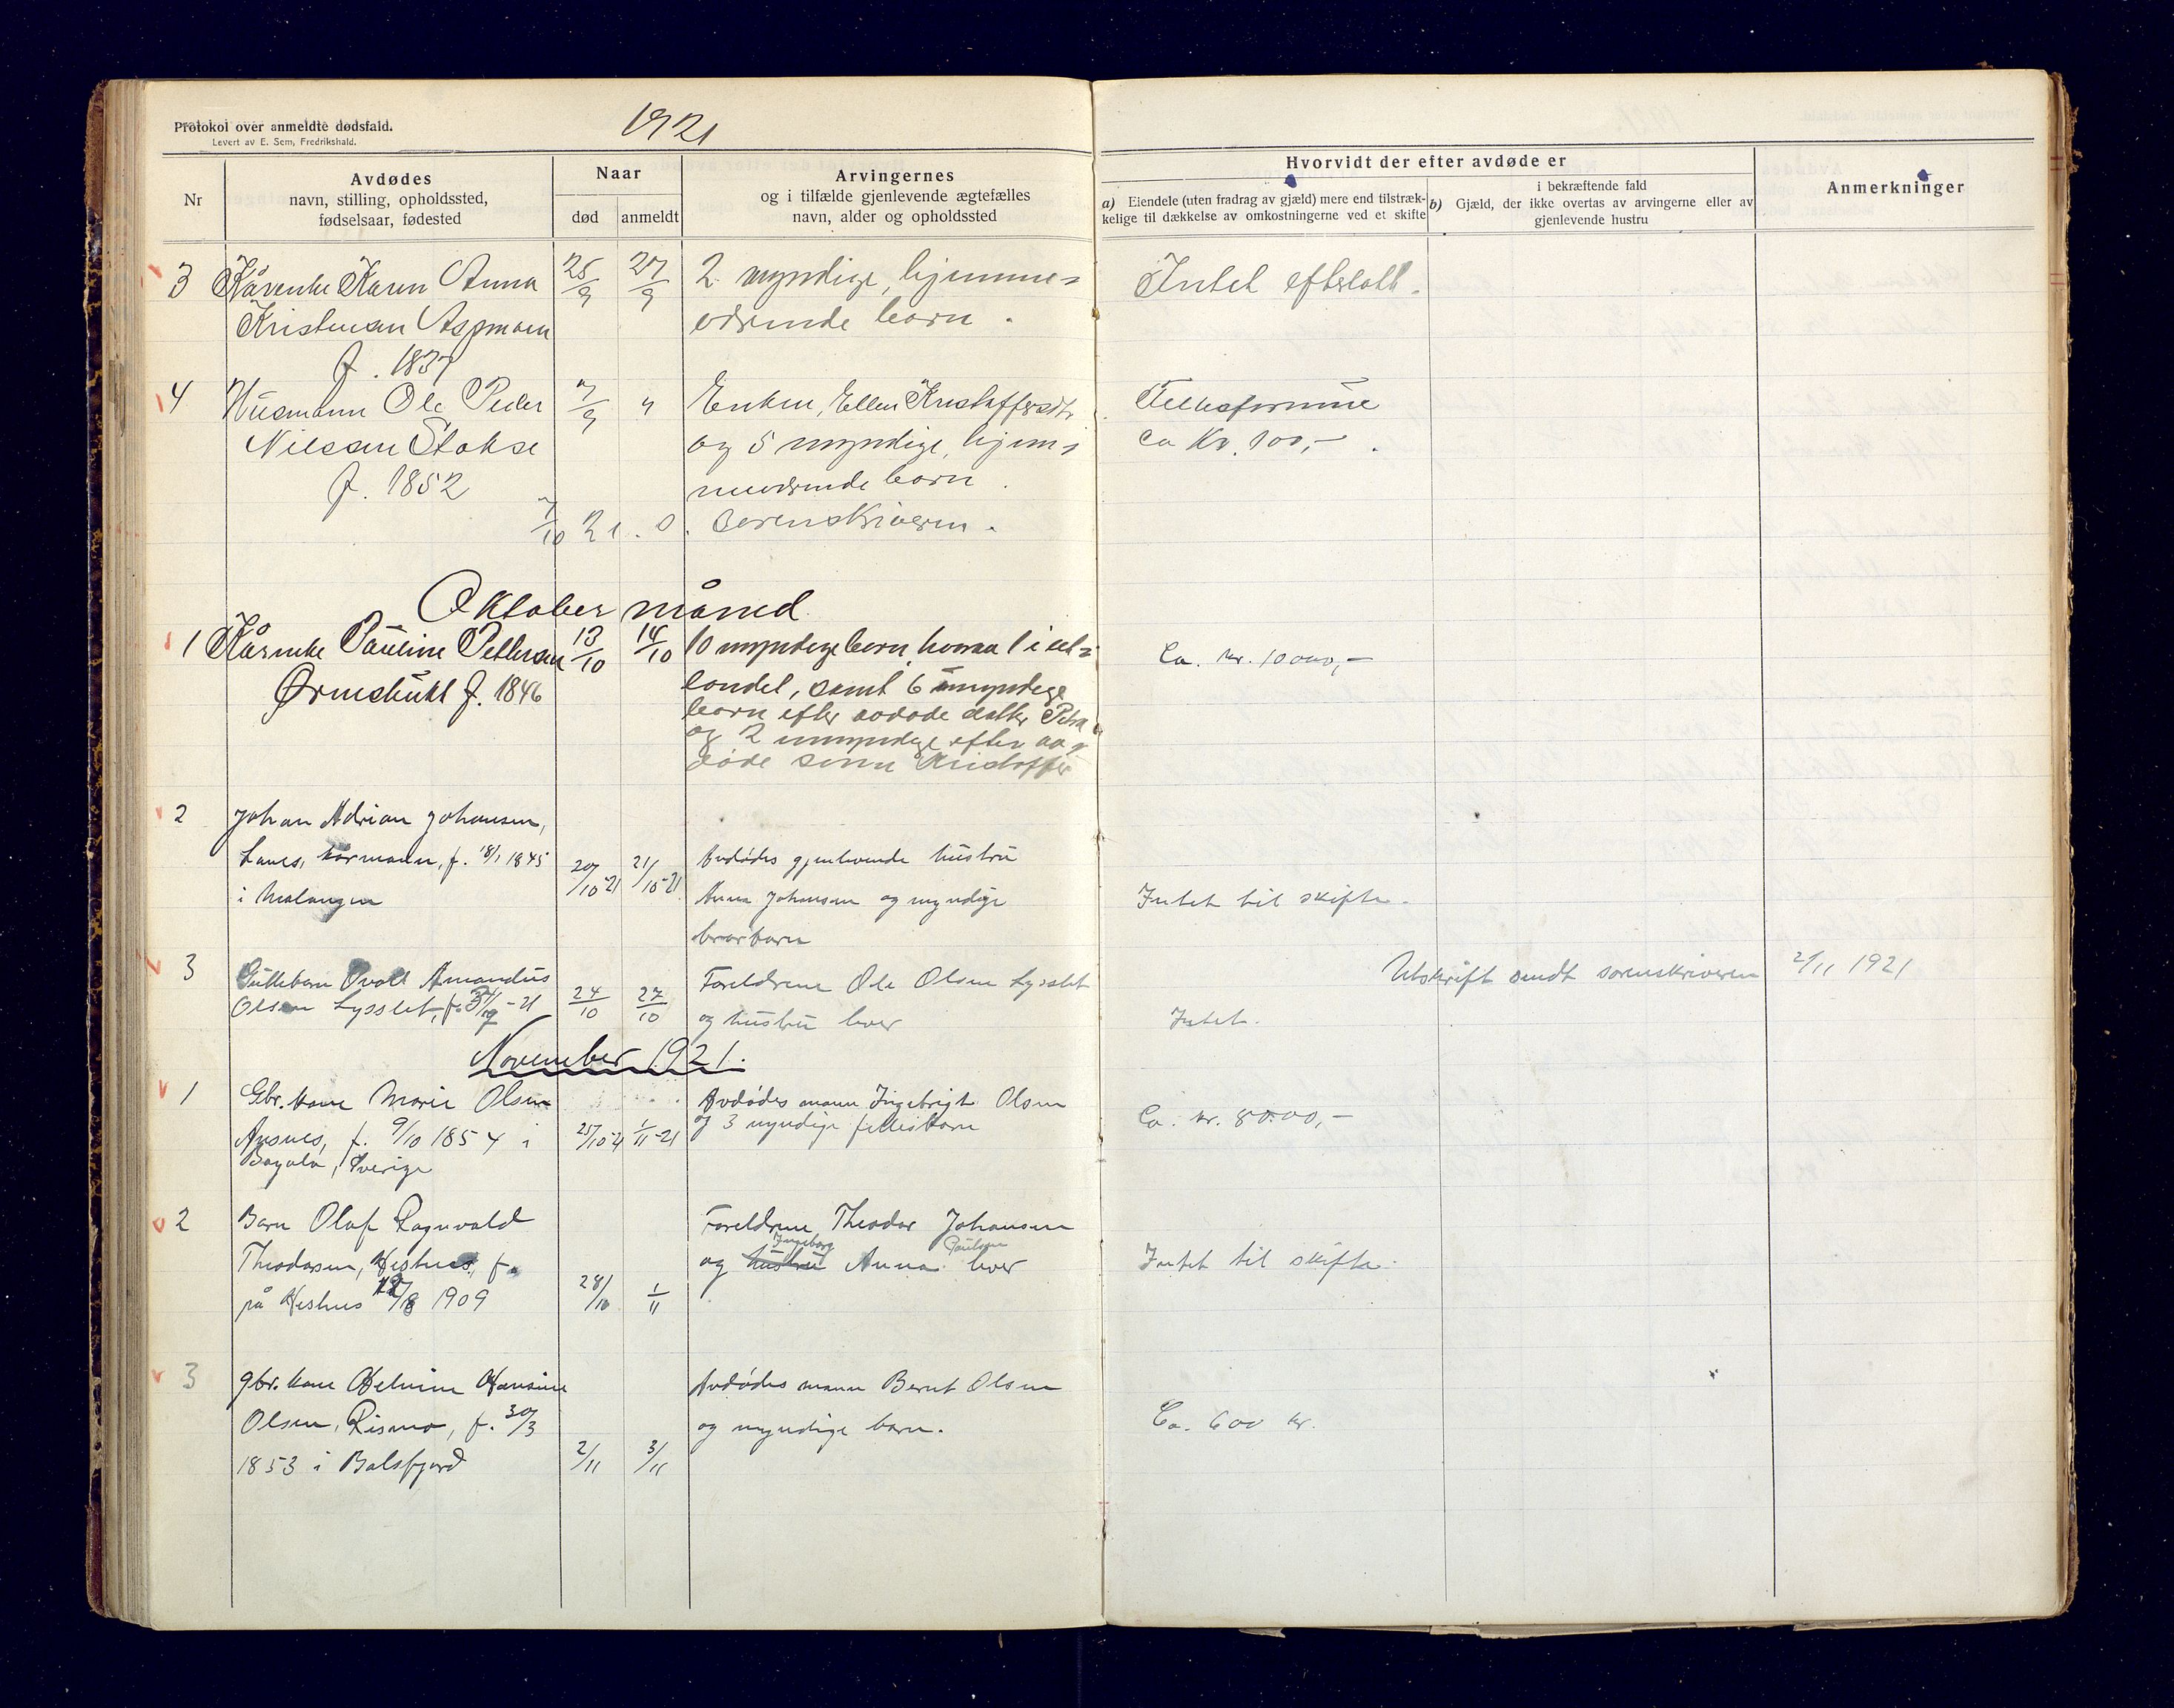 Protokol over anmeldte dødsfald.
Levert av E. Sem, Fredrikshald.
1921
Nr
Avdødes
navn, stilling, opholdssted,
fødselsaar, fødested
Naar
død
anmeldt
Arvingernes
og i tilfælde gjenlevende ægtefælles
navn, alder og opholdssted
Hvorvidt der efter avdøde er
a) Eiendele (uten fradrag av gjæld) mere end tilstræk-
kelige til dækkelse av omkostningerne ved et skifte
i bekræftende fald
b) Gjæld, der ikke overtas av arvingerne eller av
gjenlevende hustru
Anmerkninger
3 Kårenke Karen Anna 25/9 27/9 2 myndige, hjemme= Intet efterlatt.
Kristensen Aspmoen værende børn.
f. 1837
4 Husmann Ole Peder 7/9 " Enken, Ellen Kristoffersdtr Fellesformue
Nilssen Stokse og 5 myndige, hjem= ca Kr. 100,-
f. 1852 meværende børn.
7/10 21. S. Sorenskriveren.
Oktober måned
1 Kårenke Pauline Pettersen 13/10 14/10 10 myndige børn, hvoraf 1 i ut= Ca. kr. 10000,-
Ørnebukt f. 1846 landet, samt 6 umyndige
børn efter avdøde datter Petra
og 2 umyndige efter av=
døde sønn Kristoffer
2 Johan Adrian Johansen,
Lanes, kårmann, f. 18/1 1845 20/10-21 21/10-21 Avdødes gjenlevende hustru
i Malangen Anna Johansen og myndige Intet til skifte.
brorbarn
3 Guttebarn Ovald Amandus 24/10 27/10 Foreldrene Ole Olsen Lysslet Utskrift sendt sorenskriveren 2/11 1921
Olsen Lysslet, f. -21 og hustru lever Intet.
November 1921.
1 Gbr. kone Marie Olsen Avdødes mann Ingebrigt Olsen Ca. kr. 8000,-
Ansnes, f. 9/10 1854 i 25/10-21 1/11-21 og 3 myndige fellesbarn
Sverige
2 Barn Olaf Ragnvald Foreldrene Theodor Johansen
Theodorsen, Heshus, f. og hustru Ingeborg Anna Paulsen lever Intet til skifte.
på Heshus 1909 28/10 1/11
3 gbr. kone Helmine Hansine Avdødes mann Bernt Olsen
Olsen, Rismo, f. 30/3 og myndige barn. Ca. 600 kr.
1853 i Balsfjord 2/11 3/11